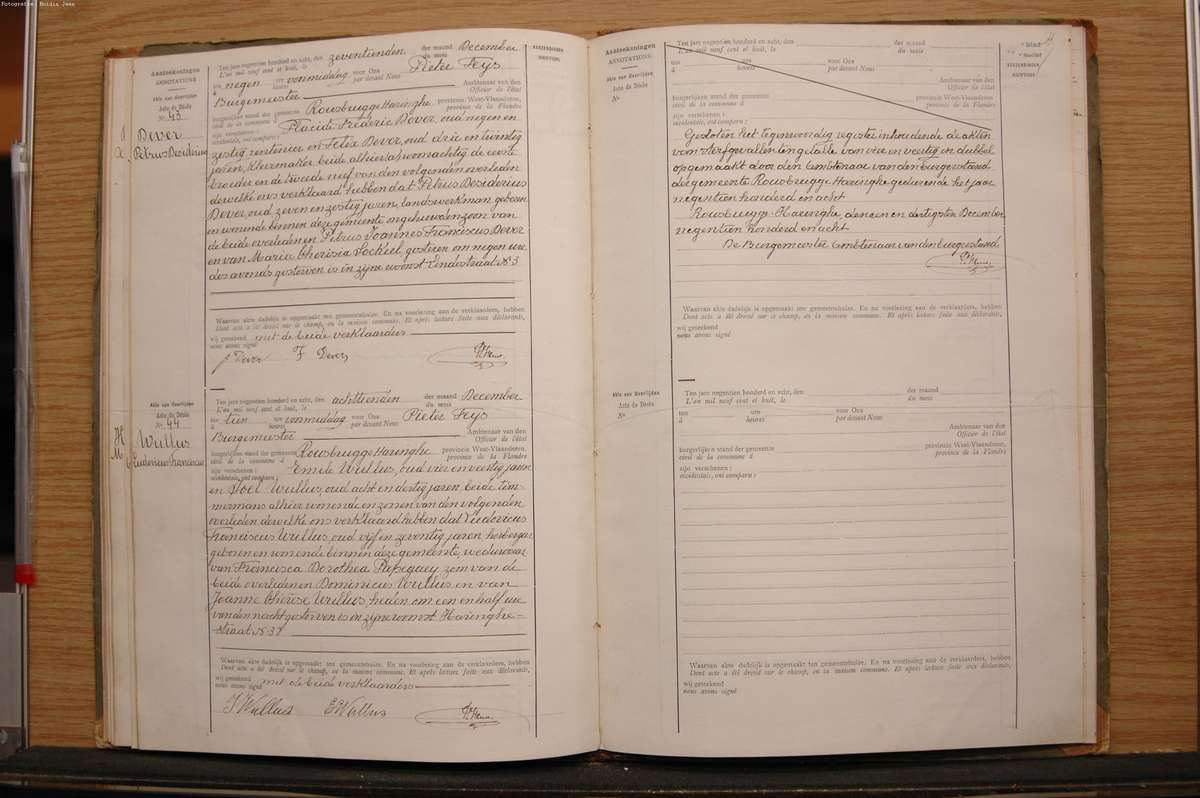 Fotografie: Buidin Jean
Aanteekeningen
ANNOTATIONS
Akte van Overlijden
Acte de Décès
No 43
Dever
Petrus Desiderius
Ten jare negentien honderd en acht, den zeventienden der maand December
L'an mil neuf cent et huit, le du mois
ten negen ure voormiddag voor Ons Pieter Feys
à heures par devant Nous
Burgemeester Ambtenaar van den
Officier de l'état
burgerlijken stand der gemeente Rousbrugge Haringhe provincie West-Vlaanderen,
civil de la commune à province de la Flandre
zijn verschenen : Placide Frederic Dever, oud negen en
occidentale, ont comparu :
zestig rentenier en Felix Dever, oud drie en twintig
jaren, kleermaker beide alhier woonachtig de eerste
broeder en de tweede neef van den volgenden overleden
derwelke ons verklaard hebben dat Petrus Desiderius
Dever, oud zeven en zestig jaren, landswerkman geboren
en wonende binnen deze gemeente ongehuwden zoon van
de beide overleden Petrus Joannes Franciscus Dever
en van Maria Theresia Lockeel gisteren om negen ure
des avonds gestorven is in zijne woonst Eindestraat No 3
Waarvan akte dadelijk is opgemaakt ten gemeentehuize. En na voorlezing aan de verklaarders, hebben
Dont acte a été dressé sur le champ, en la maison commune. Et après lecture faite aux déclarants,
wij geteekend met de beide verklaarders
nous avons signé
P Dever F Dever P. Feys
Akte van Overlijden
Acte de Décès
No 44
Wullus
Ludovicus Franciscus
Ten jare negentien honderd en acht, den achttienden der maand December
L'an mil neuf cent et huit, le du mois
ten tien ure voormiddag voor Ons Pieter Feys
à heures par devant Nous
Burgemeester Ambtenaar van den
Officier de l'état
burgerlijken stand der gemeente Rousbrugge Haringhe provincie West-Vlaanderen,
civil de la commune à province de la Flandre
zijn verschenen : Emile Wullus, oud vier en veertig jaren
occidentale, ont comparu :
en Joël Wullus, oud acht en dertig jaren beide tim-
mermans alhier wonende en zonen van den volgenden
overleden derwelke ons verklaard hebben dat Ludovicus
Franciscus Wullus, oud vijf en zeventig jaren herbergier
geboren en wonende binnen deze gemeente, weduwaar
van Francisca Dorothea Papegaey zoon van de
beide overledenen Dominicus Wullus en van
Joanne Therese Wullus, heden om een en half ure
van den nacht gestorven is in zijne woonst Haringhe-
straat No 37
Waarvan akte dadelijk is opgemaakt ten gemeentehuize. En na voorlezing aan de verklaarders, hebben
Dont acte a été dressé sur le champ, en la maison commune. Et après lecture faite aux déclarants,
wij geteekend met de beide verklaarders
nous avons signé
J Wullus E Wullus P. Feys
Aanteekeningen
ANNOTATIONS
Akte van Overlijden
Acte de Décès
No
Ten jare negentien honderd en acht, den der maand
L'an mil neuf cent et huit, le du mois
ten ure voor Ons
à heures par devant Nous
Ambtenaar van den
Officier de l'état
burgerlijken stand der gemeente provincie West-Vlaanderen,
civil de la commune à province de la Flandre
zijn verschenen :
occidentale, ont comparu :
Gesloten het tegenwoordig register inhoudende de akten
van sterfgevallen ten getalle van vier en veertig in dubbel
opgemaakt door den Ambtenaar van den burgerstand
der gemeente Rousbrugge Haringhe gedurende het jaar
negentien honderd en acht
Rousbrugge-Haringhe, den een en dertigsten December
negentien honderd en acht
De Burgemeester Ambtenaar van den burgerstand
P. Feys
Waarvan akte dadelijk is opgemaakt ten gemeentehuize. En na voorlezing aan de verklaarders, hebben
Dont acte a été dressé sur le champ, en la maison commune. Et après lecture faite aux déclarants,
wij geteekend
nous avons signé
Akte van Overlijden
Acte de Décès
No
Ten jare negentien honderd en acht, den der maand
L'an mil neuf cent et huit, le du mois
ten ure voor Ons
à heures par devant Nous
Ambtenaar van den
Officier de l'état
burgerlijken stand der gemeente provincie West-Vlaanderen,
civil de la commune à province de la Flandre
zijn verschenen :
occidentale, ont comparu :
Waarvan akte dadelijk is opgemaakt ten gemeentehuize. En na voorlezing aan de verklaarders, hebben
Dont acte a été dressé sur le champ, en la maison commune. Et après lecture faite aux déclarants,
wij geteekend
nous avons signé